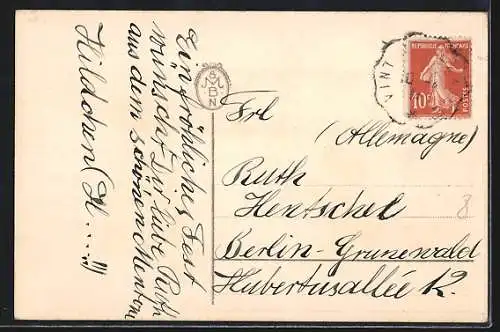 Ein fröhliches Fest
wünscht Dir liebe Ruth
aus dem schönen Mentone
Hildchen (H....!!)
M
J M
B
N
VINT
REPUBLIQUE FRANÇAISE
10c
POSTES
Frl
(Allemagne)
Ruth
Hentschel
Berlin-Grunewald
Hubertusallée 12.
8